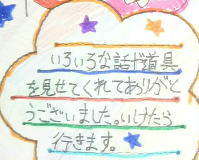 いろいろな話や道具
を見せてくれてありがと
うございました。いけたら
行きます。